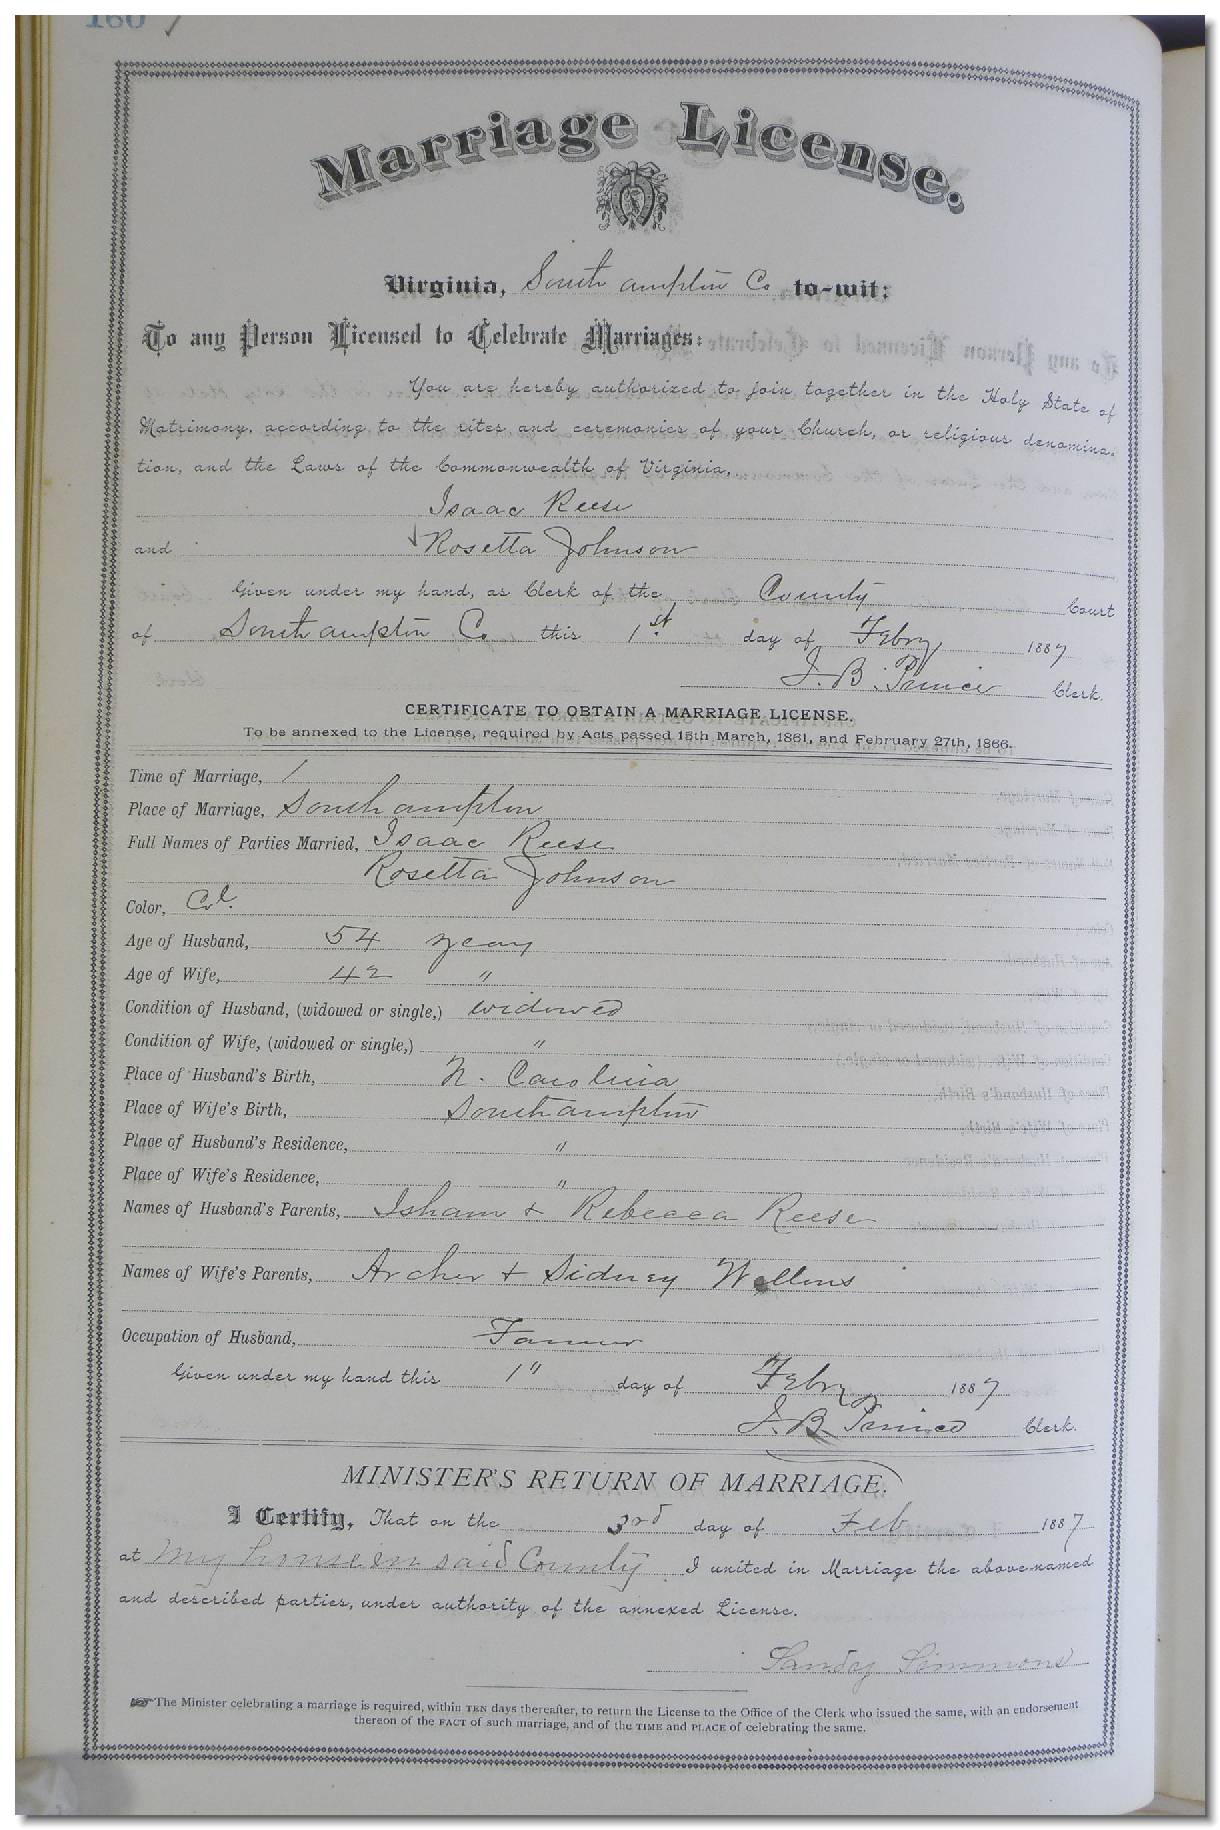 180
Marriage License.
Virginia, Southampton Co to-wit:
To any Person Licensed to Celebrate Marriages:
You are hereby authorized to join together in the Holy State of
Matrimony, according to the rites and ceremonies of your Church, or religious denomina-
tion, and the Laws of the Commonwealth of Virginia,
Isaac Reese
and Rosetta Johnson
Given under my hand, as Clerk of the County Court
of Southampton Co this 1st day of Febry 1887
J. B. Prince Clerk.
CERTIFICATE TO OBTAIN A MARRIAGE LICENSE.
To be annexed to the License, required by Acts passed 15th March, 1861, and February 27th, 1866.
Time of Marriage,
Place of Marriage, Southampton
Full Names of Parties Married, Isaac Reese
Rosetta Johnson
Color, Col.
Age of Husband, 54 years
Age of Wife, 42 "
Condition of Husband, (widowed or single,) widowed
Condition of Wife, (widowed or single,) "
Place of Husband's Birth, N. Carolina
Place of Wife's Birth, Southampton
Place of Husband's Residence, "
Place of Wife's Residence, "
Names of Husband's Parents, Isham + Rebecca Reese
Names of Wife's Parents, Archer + Sidney
Occupation of Husband, Farmer
Given under my hand this 1" day of Febry 1887
J. B. Prince Clerk.
MINISTER'S RETURN OF MARRIAGE.
I Certify, That on the 3rd day of Feb 1887
at My house in said County, I united in Marriage the above-named
and described parties, under authority of the annexed License.
Sandy Simmons
The Minister celebrating a marriage is required, within TEN days thereafter, to return the License to the Office of the Clerk who issued the same, with an endorsement
thereon of the FACT of such marriage, and of the TIME and PLACE of celebrating the same.